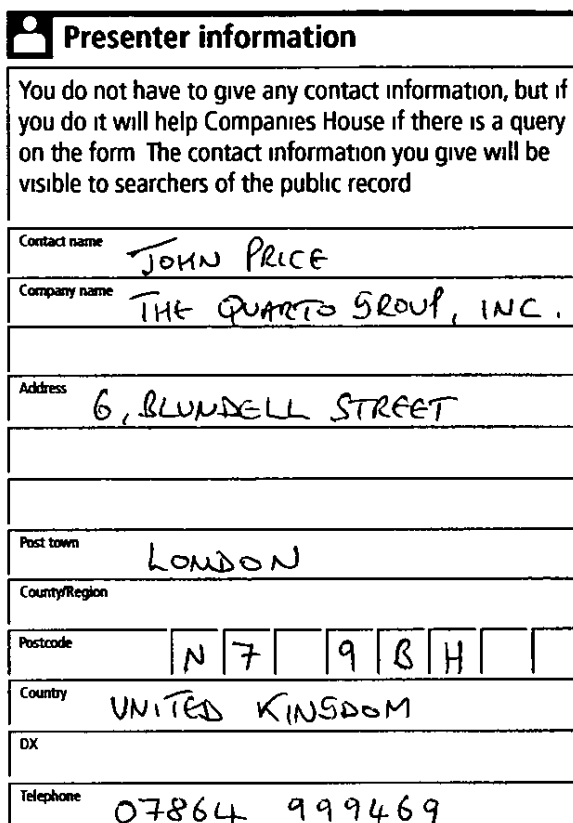 Presenter information
You do not have to give any contact information, but if
you do it will help Companies House if there is a query
on the form The contact information you give will be
visible to searchers of the public record
Contact name JOHN PRICE
Company name THE QUARTO GROUP, INC.
Address 6, BLUNDELL STREET
Post town LONDON
County/Region
Postcode N7 9BH
Country UNITED KINGDOM
DX
Telephone 07864 999469